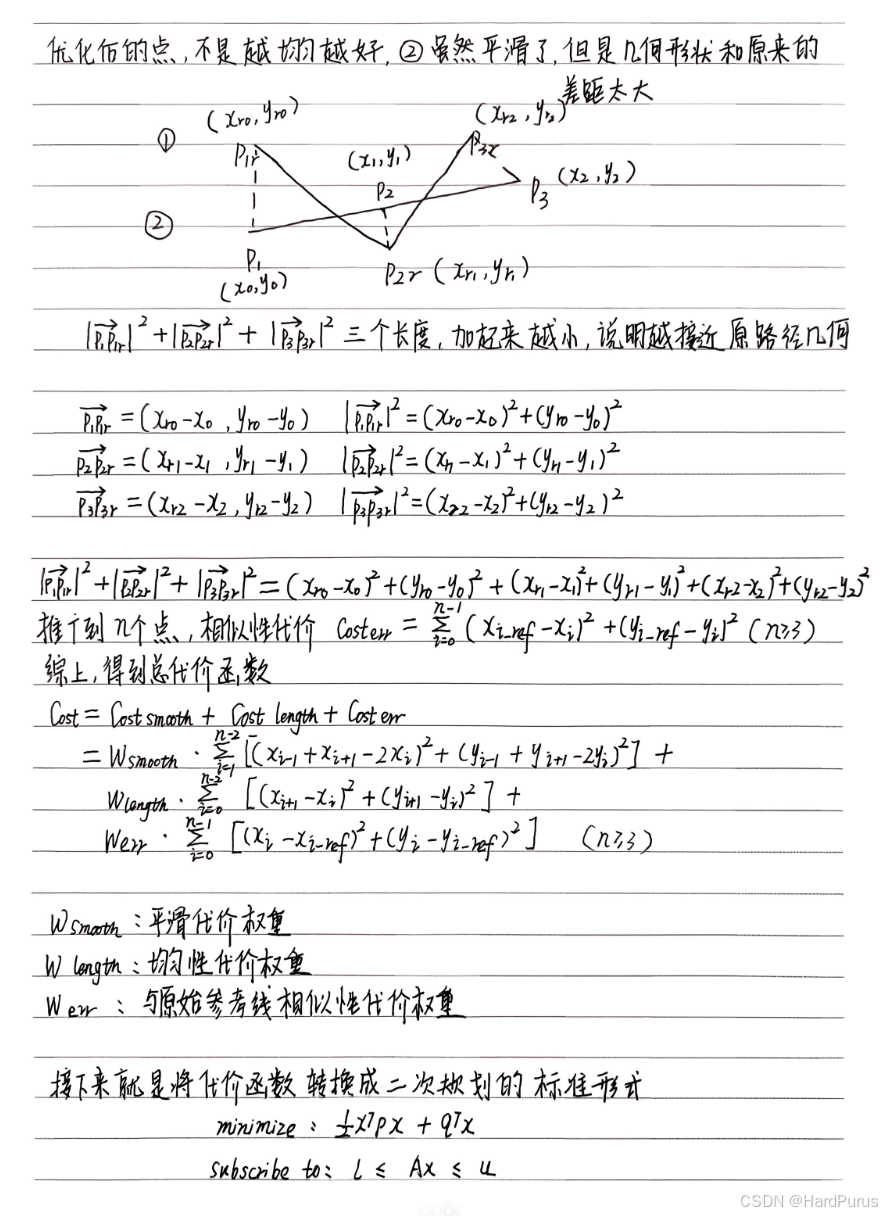 优化后的点,不是越均匀越好,②虽然平滑了,但是几何形状和原来的
差距太大
(xr0, yr0)
(xr2, yr2)
①
P1r
(x1, y1)
P3r
P2
P3 (x2, y2)
②
P1
(x0, y0)
P2r (xr1, yr1)
|P1P1r|² + |P2P2r|² + |P3P3r|² 三个长度,加起来越小,说明越接近原路径几何
P1P1r = (xr0-x0, yr0-y0) |P1P1r|² = (xr0-x0)² + (yr0-y0)²
P2P2r = (xr1-x1, yr1-y1) |P2P2r|² = (xr1-x1)² + (yr1-y1)²
P3P3r = (xr2-x2, yr2-y2) |P3P3r|² = (xr2-x2)² + (yr2-y2)²
|P1P1r|² + |P2P2r|² + |P3P3r|² = (xr0-x0)² + (yr0-y0)² + (xr1-x1)² + (yr1-y1)² + (xr2-x2)² + (yr2-y2)²
推广到n个点,相似性代价 Cost err = Σ_{i=0}^{n-1} (xi_ref - xi)² + (yi_ref - yi)² (n≥3)
综上,得到总代价函数
Cost = Cost smooth + Cost length + Cost err
= Wsmooth · Σ_{i=1}^{n-2} [(xi-1 + xi+1 - 2xi)² + (yi-1 + yi+1 - 2yi)²] +
Wlength · Σ_{i=0}^{n-2} [(xi+1 - xi)² + (yi+1 - yi)²] +
Werr · Σ_{i=0}^{n-1} [(xi - xi_ref)² + (yi - yi_ref)²] (n≥3)
Wsmooth : 平滑代价权重
Wlength : 均匀性代价权重
Werr : 与原始参考线相似性代价权重
接下来就是将代价函数转换成二次规划的标准形式
minimize : ½xᵀPx + qᵀx
subscribe to: l ≤ Ax ≤ u
CSDN @HardPurus